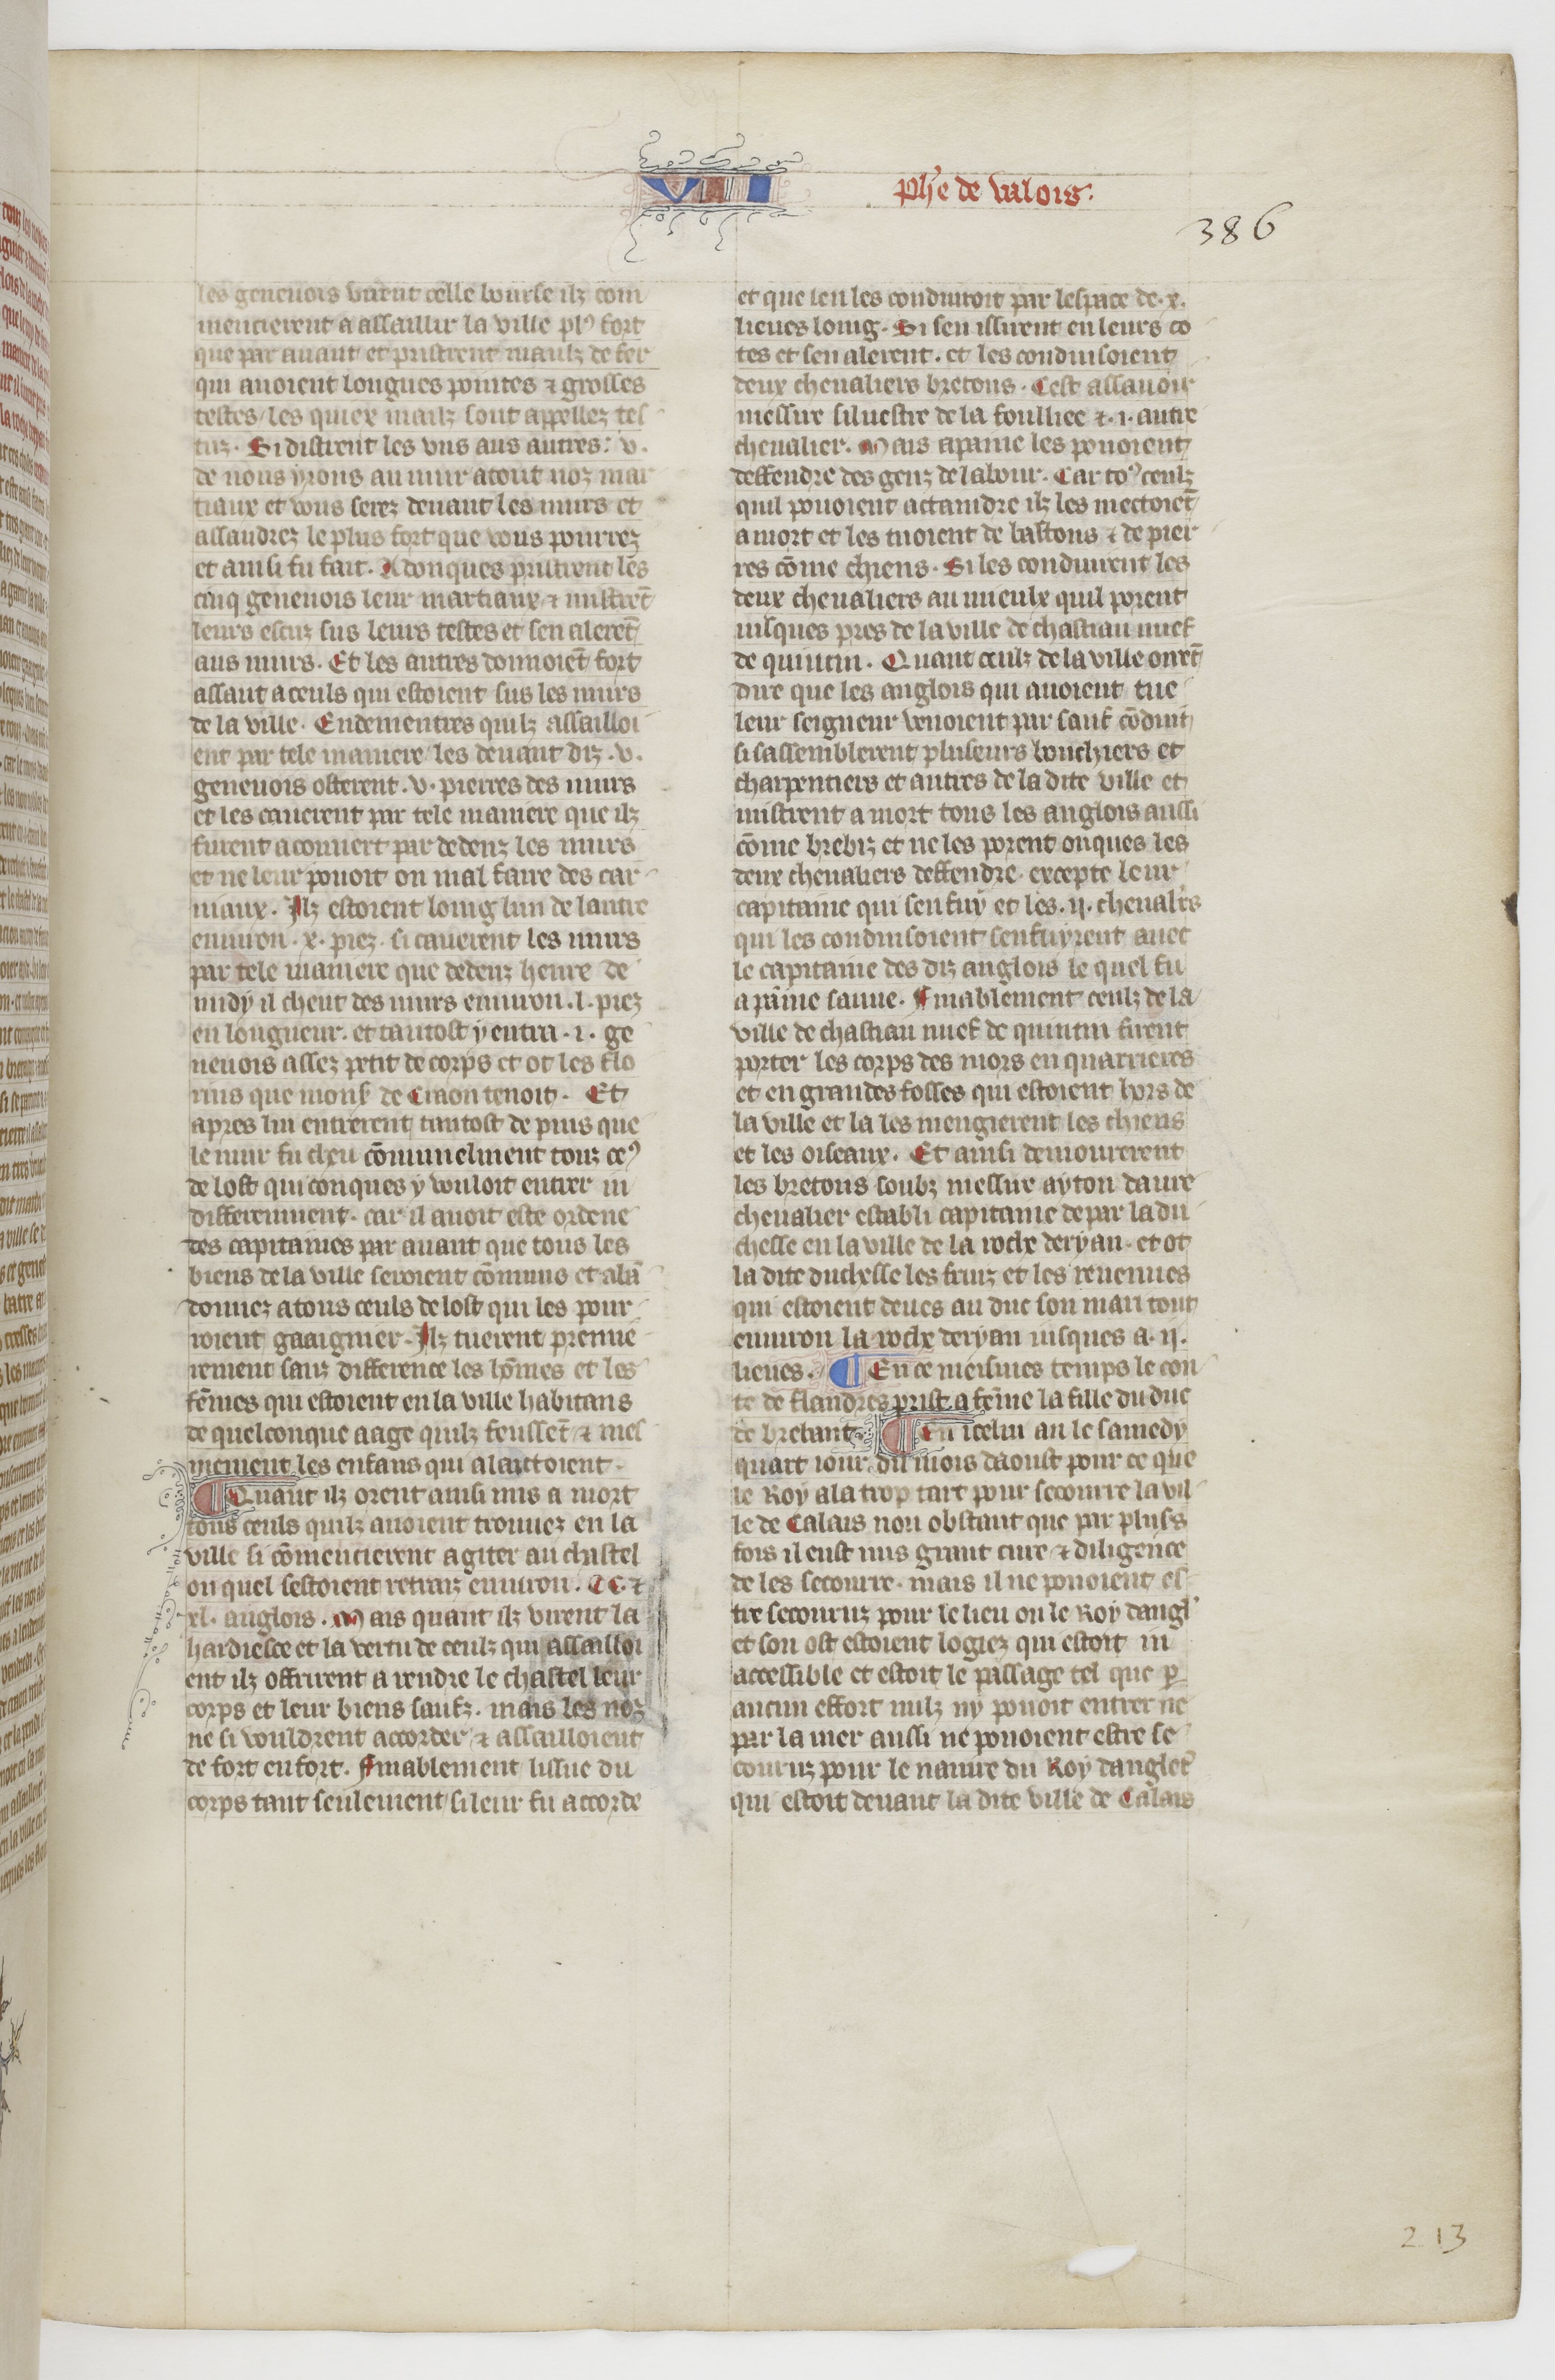 VII
Ph'e de valois.
386
les geneuois virent celle bourse ilz com
mencierent a assaillir la ville pl9 fort
que par auant et pristrent maulz de fer
qui auoient longues pointes & grosses
testes / les quiex mailz sont appellez tes
tuz. Si distrent les vns aus autres: v.
de nous yrons au mur atout noz mar
tiaux et vous serez deuant les murs et
assaudrez le plus fort que vous pourrez
et ainsi fu fait. Adonques pristrent les
cinq geneuois leur martiaux & mistret̄
leurs escuz sus leurs testes et sen aleret̄
aus murs. Et les autres donnoiet̄ fort
assaut a ceuls qui estoient sus les murs
de la ville. Endementres quilz assailloi
ent par tele maniere / les deuant diz .v.
geneuois osterent .v. pierres des murs
et les cauerent par tele maniere que ilz
furent a couuert par dedenz les murs
et ne leur pouoit on mal faire des car
niaux. Ilz estoient loing lun de lautre
enuiron .x. piez. si cauerent les murs
par tele maniere que dedenz heure de
midy il cheut des murs enuiron .l. piez
en longueur. et tantost y entra .i. ge
neuois assez petit de corps et ot les flo
rins que mons̄ de Craon tenoit. Et
apres lui entrerent tantost de puis que
le mur fu cheu cōmunelment touz ce9
de lost qui conques y vouloit entrer in
differenment. car il auoit este ordene
des capitaines par auant que tous les
biens de la ville seroient cōmuns et abā
donnez a tous ceuls de lost qui les pour
roient gaaignier. Ilz tuerent premie
rement sanz difference les hōmes et les
fēmes qui estoient en la ville habitans
de quelconque aage quilz feusset̄ & mes
mement les enfans qui alaictoient.
¶ Quant ilz orent ainsi mis a mort
tous ceuls quilz auoient trouuez en la
ville si cōmencierent a giter au chastel
ou quel sestoient retraiz enuiron. CC. &
xl. anglois. Mais quant ilz virent la
hardiesce et la vertu de ceulz qui assailloi
ent ilz offrirent a rendre le chastel leur
corps et leur biens saufz. mais les noz
ne si vouldrent accorder & assailloient
de fort en fort. Finablement lissue du
corps tant seulement si leur fu accorde
et que len les conduiroit par lespace de .x.
lieues loing. Si sen issirent en leurs co
tes et sen alerent. et les conduisoient
deux cheualiers bretons. Cest assauoir
messire siluestre de la foulliee & .i. autre
cheualier. Mais a paine les pouoient
deffendre des genz de labour. Car to9 ceulz
quil pouoient actaindre ilz les mectoiet̄
a mort et les tuoient de bastons & de pier
res cōme chiens. Si les conduirent les
deux cheualiers au mieulx quil porent
iusques pres de la ville de chastiau nuef
de quintin. Quant ceulz de la ville oiret̄
dire que les anglois qui auoient tue
leur seigneur venoient par sauf cōduit
si sassemblerent pluseurs bouchiers et
charpentiers et autres de la dite ville et
mistrent a mort tous les anglois aussi
cōme brebiz et ne les porent onques les
deux cheualiers deffendre. excepte leur
capitaine qui sen fuy et les .ij. cheual'rs
qui les conduisoient senfuyrent auec
le capitaine des diz anglois le quel fu
a pāine sauue. Finablement ceulz de la
ville de chastiau nuef de quintin firent
porter les corps des mors en quarrieres
et en grandes fosses qui estoient hors de
la ville et la les mengierent les chiens
et les oiseaux. Et ainsi demourerent
les bretons soubz messire ayton daure
cheualier establi capitaine de par la du
chesse en la ville de la roche deryan. et ot
la dite duchesse les fruiz et les reuenues
qui estoient deues au duc son mari tout
enuiron la roche deryan iusques a .ij.
lieues. ¶ En ce meismes temps le con
te de flandres prist a fēme la fille du duc
de brebant. ¶ En icelui an le samedy
quart iour du mois daoust pour ce que
le Roy ala trop tart pour secourre la vil
le de Calais non obstant que par plus's
fois il eust mis grant cure & diligence
de les secourre. mais il ne pouoient es
tre secouruz pour le lieu ou le Roy dangl'
et son ost estoient logiez qui estoit in
accessible et estoit le passage tel que p̱
aucun effort nulz ny pouoit entrer ne
par la mer aussi ne pouoient estre se
couruz pour le nauire du Roy danglet'
qui estoit deuant la dite ville de Calais
213